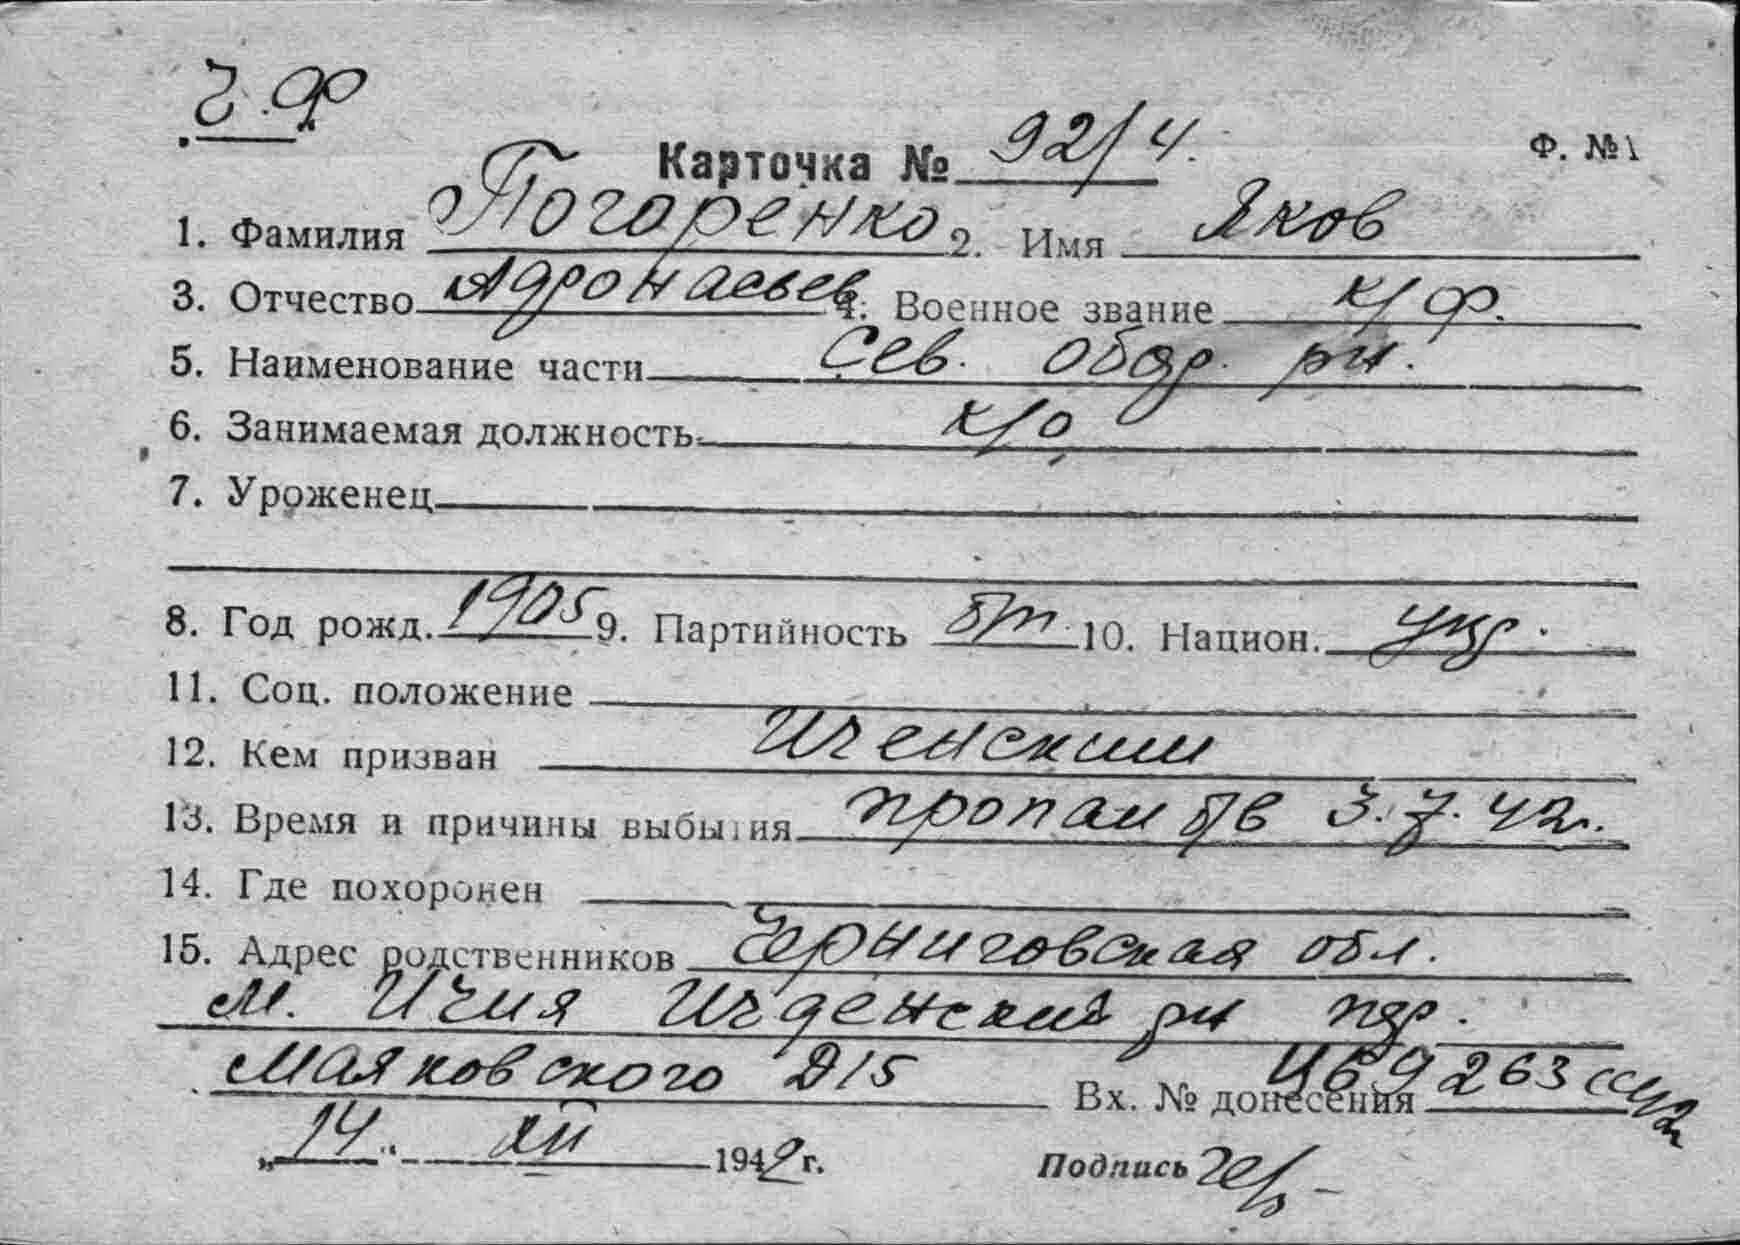 Ч.Ф
Карточка № 92/4. Ф. №1
1. Фамилия Погоренко 2. Имя Яков
3. Отчество Афонасьев 4. Военное звание к/ф.
5. Наименование части Сев. обор. рн.
6. Занимаемая должность к/о
7. Уроженец
8. Год рожд. 1905 9. Партийность б/п. 10. Национ. укр.
11. Соц. положение
12. Кем призван Иченским
13. Время и причины выбытия пропал б/в 3.7.42г.
14. Где похоронен
15. Адрес родственников Черниговская обл.
м. Ичня Ичденский рн пер.
Маяковского Д15 Вх. № донесения 263
„14" XII 1942 г. Подпись